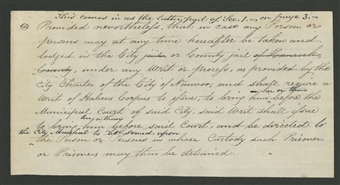 This comes in at the latter part of Sec. 1. on page 3.
Provided nevertheless, that in case any Person or
persons may at any time hereafter be taken and
lodged in the City or County jail
under any Writ or process, as provided by the
City Charter of the City of and shall require a
Writ of Habeas Corpus to issue, to bring him before the
or them
Municipal Court of said City, said Writ shall issue
to bring him before said Court, and be directed to
or them
the City Marshal to be served upon
the Person or Persons in whose Custody such Prisoner
or Prisoners may then be detained.